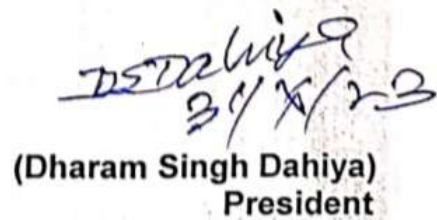 DSDahiya
31/X/23
(Dharam Singh Dahiya)
President